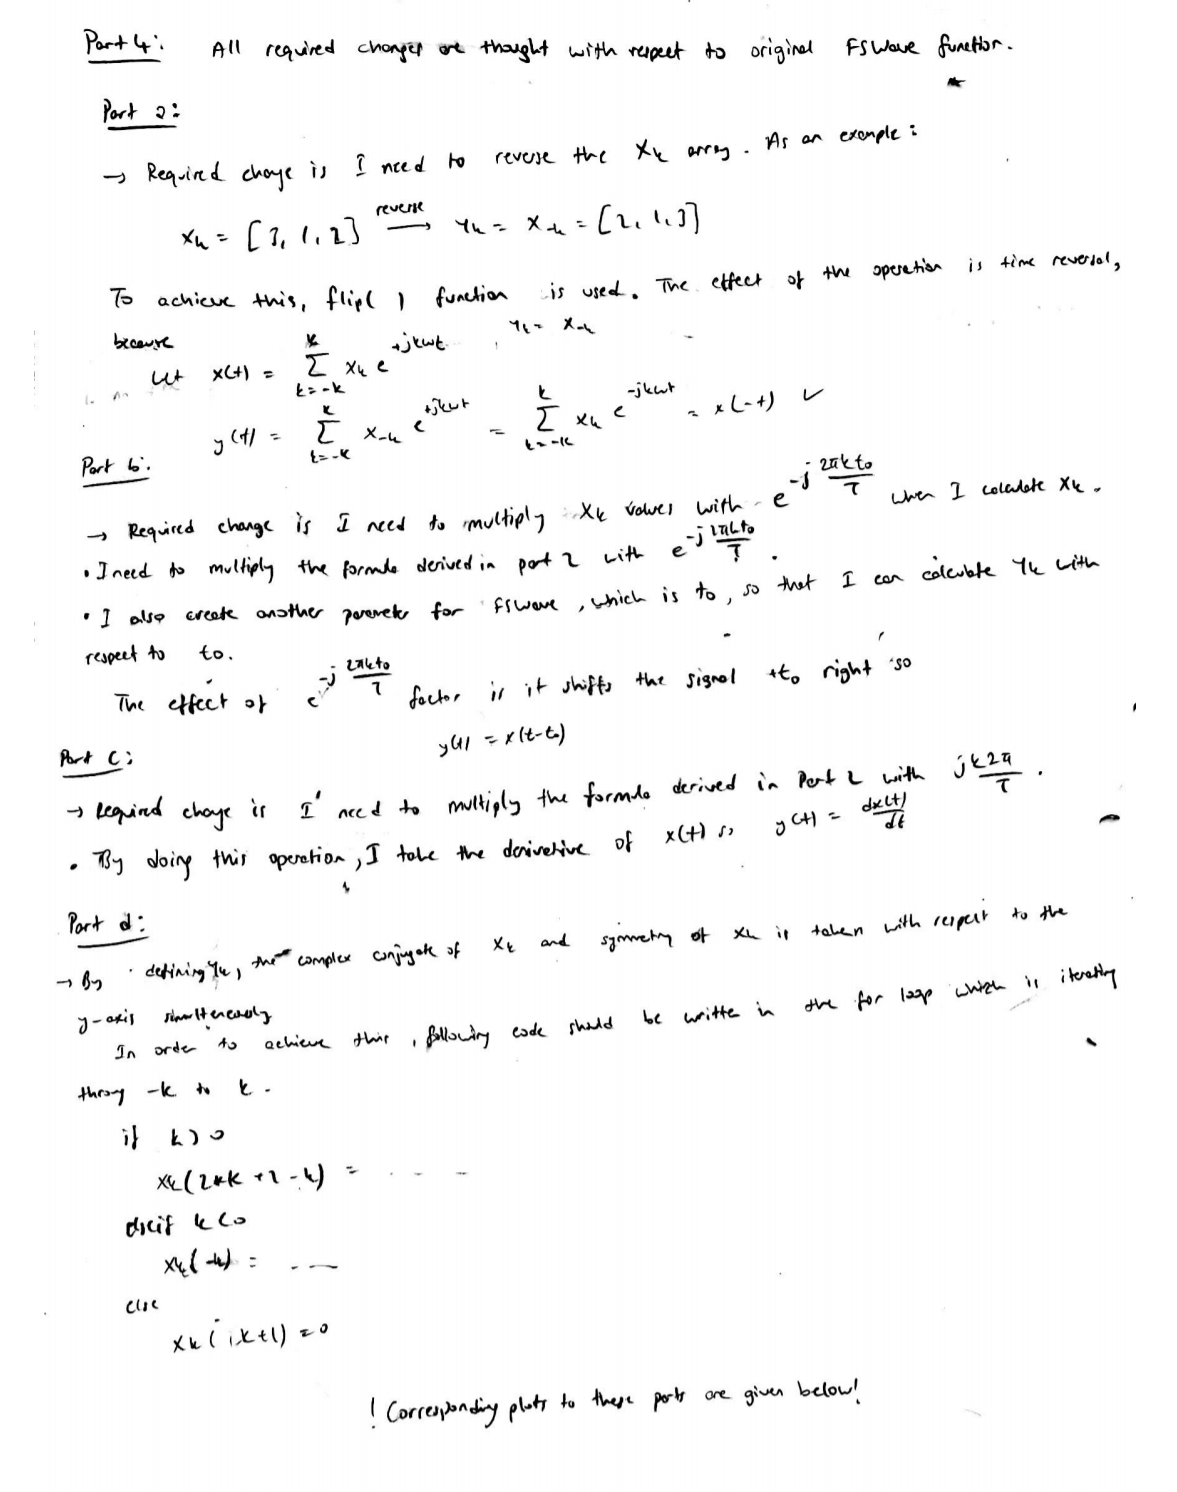 Part 4: All required changes are thought with respect to original FSWave function.
Part a:
→ Required change is I need to reverse the Xk array. As an example:
Xk = [3, 1, 2] reverse → Yk = X-k = [2, 1, 3]
To achieve this, flip( ) function is used. The effect of the operation is time reversal,
because
Let x(t) = K Σ k=-K Xk e^+jkwt , Yk = X-k
y(t) = K Σ k=-K X-k e^+jkwt = K Σ k=-K Xk e^-jkwt = x(-t) ✓
Part b:
→ Required change is I need to multiply Xk values with e^-j 2πkt0/T when I calculate Xk.
• I need to multiply the formula derived in part 2 with e^-j 2πkt0/T.
• I also create another parameter for FSWave, which is to, so that I can calculate Yk with
respect to to.
The effect of e^-j 2πkt0/T factor is it shifts the signal +t0 right so
y(t) = x(t-t0)
Part C:
→ Required change is I need to multiply the formula derived in Part 2 with jk2π/T.
• By doing this operation, I take the derivative of x(t) so y(t) = dx(t)/dt
Part d:
→ By defining Yk, the complex conjugate of Xk and symmetry of Xk is taken with respect to the
y-axis simultaneously
In order to achieve this, following code should be writte in the for loop which is iterating
throug -K to K.
if k>0
Xk(2*K+2-k) = ....
elseif k<0
Xk(-k) = ....
else
Xk(K+1)=0
! Corresponding plots to these parts are given below!